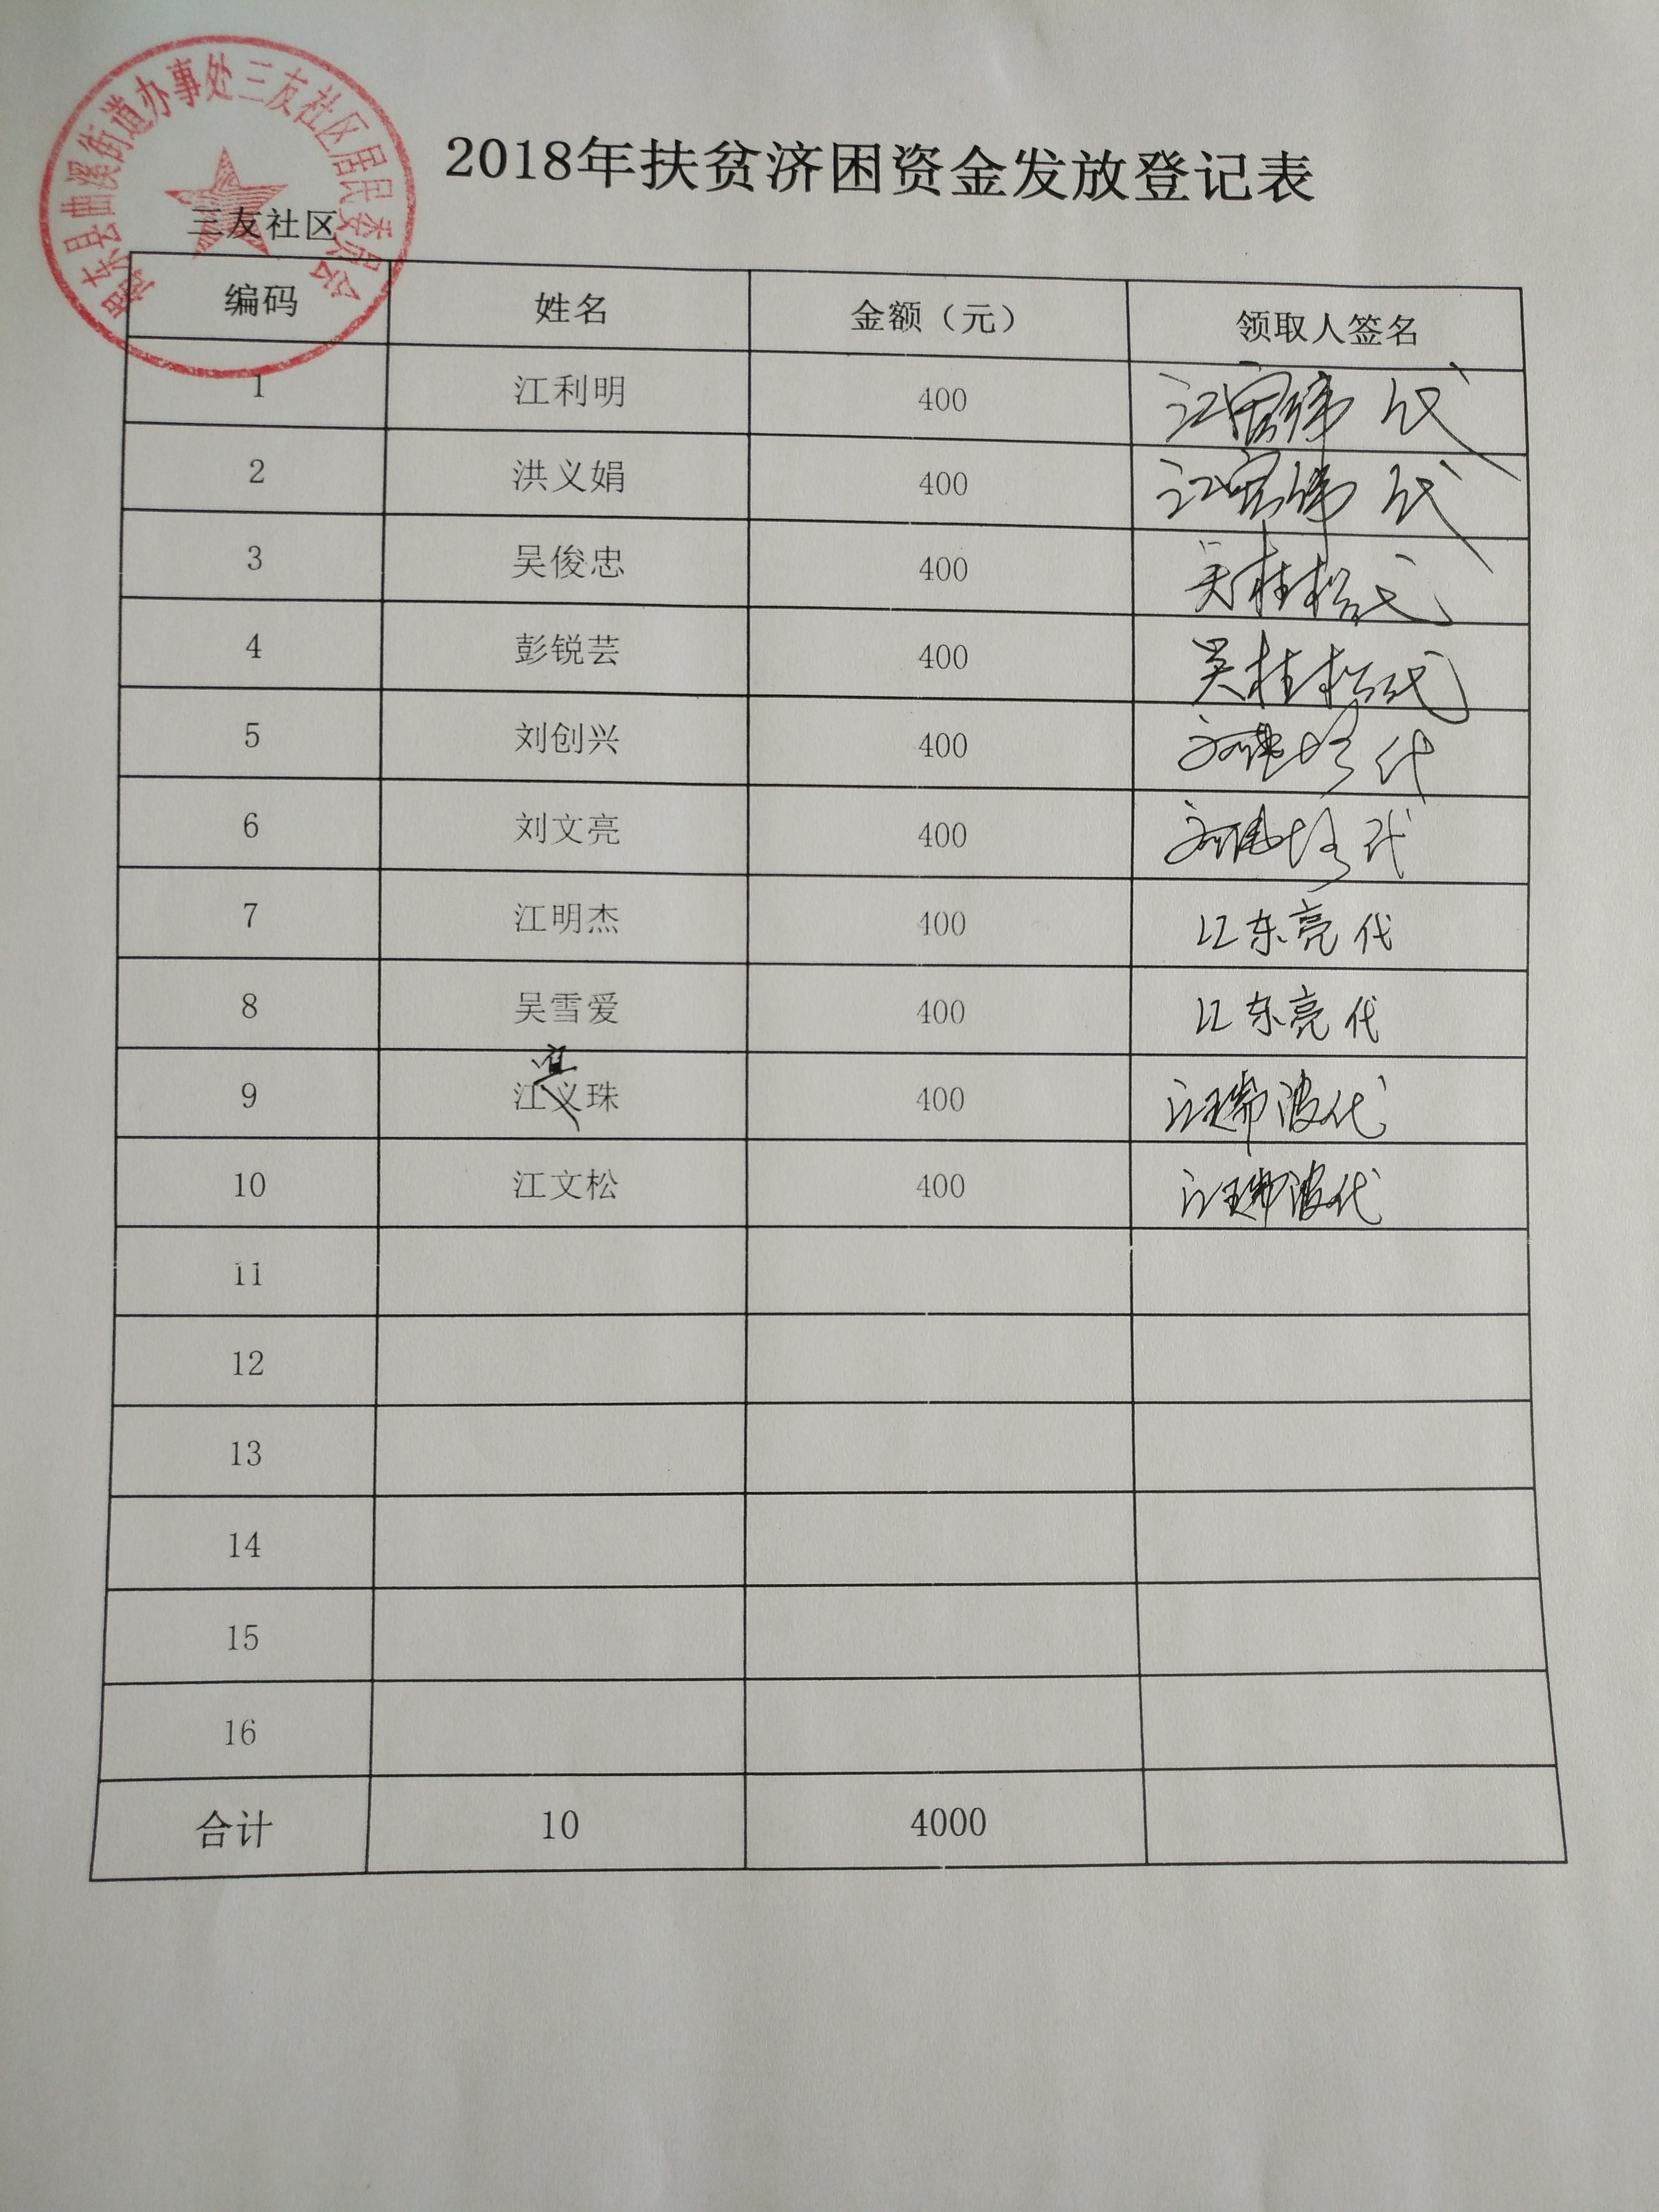 揭东县曲溪街道办事处三友社区居民委员会
2018年扶贫济困资金发放登记表
三友社区
编码 姓名 金额（元） 领取人签名
1 江利明 400 代
2 洪义娟 400 代
3 吴俊忠 400 吴桂松代
4 彭锐芸 400 吴桂松代
5 刘创兴 400 代
6 刘文亮 400 代
7 江明杰 400 江东亮代
8 吴雪爱 400 江东亮代
宜
9 江义珠 400 江瑞波代
10 江文松 400 江瑞波代
11
12
13
14
15
16
合计 10 4000